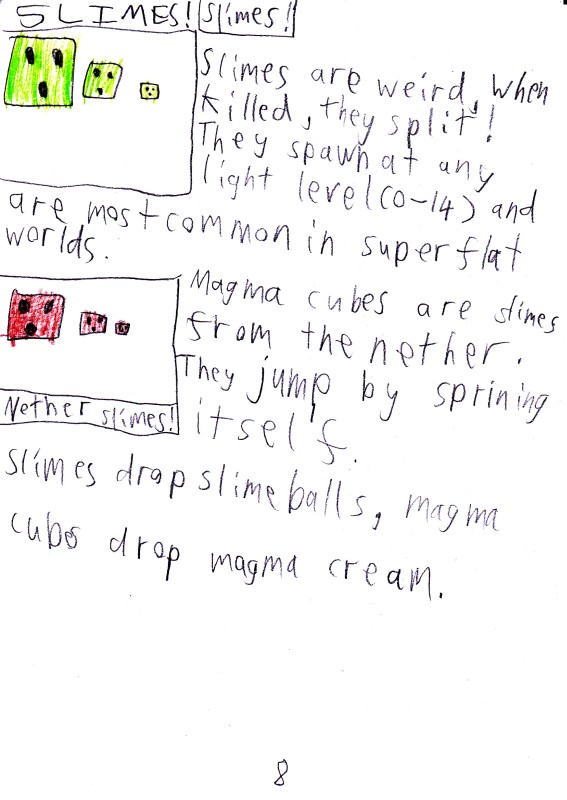 SLIMES! Slimes!
Slimes are weird, when
killed, they split!
They spawn at any
light level (0-14) and
are most common in superflat
worlds.
Magma cubes are slimes
from the nether.
They jump by sprining
itself.
Nether slimes!
slimes drop slime balls, magma
cubes drop magma cream.
8